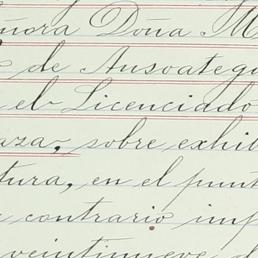 ñora Doña M
de Ansoategu
el Licenciado
aza, sobre exhib
tura, en el punt
contrario imp
veintinueve d